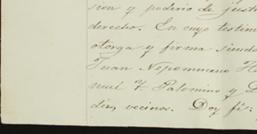 sion y poderio de justi
derecho. En cuyo testim
otorga y firma siendo
Juan Nepomuceno H
nuel F. Palomino y D
dias vecinos. Doy fé.